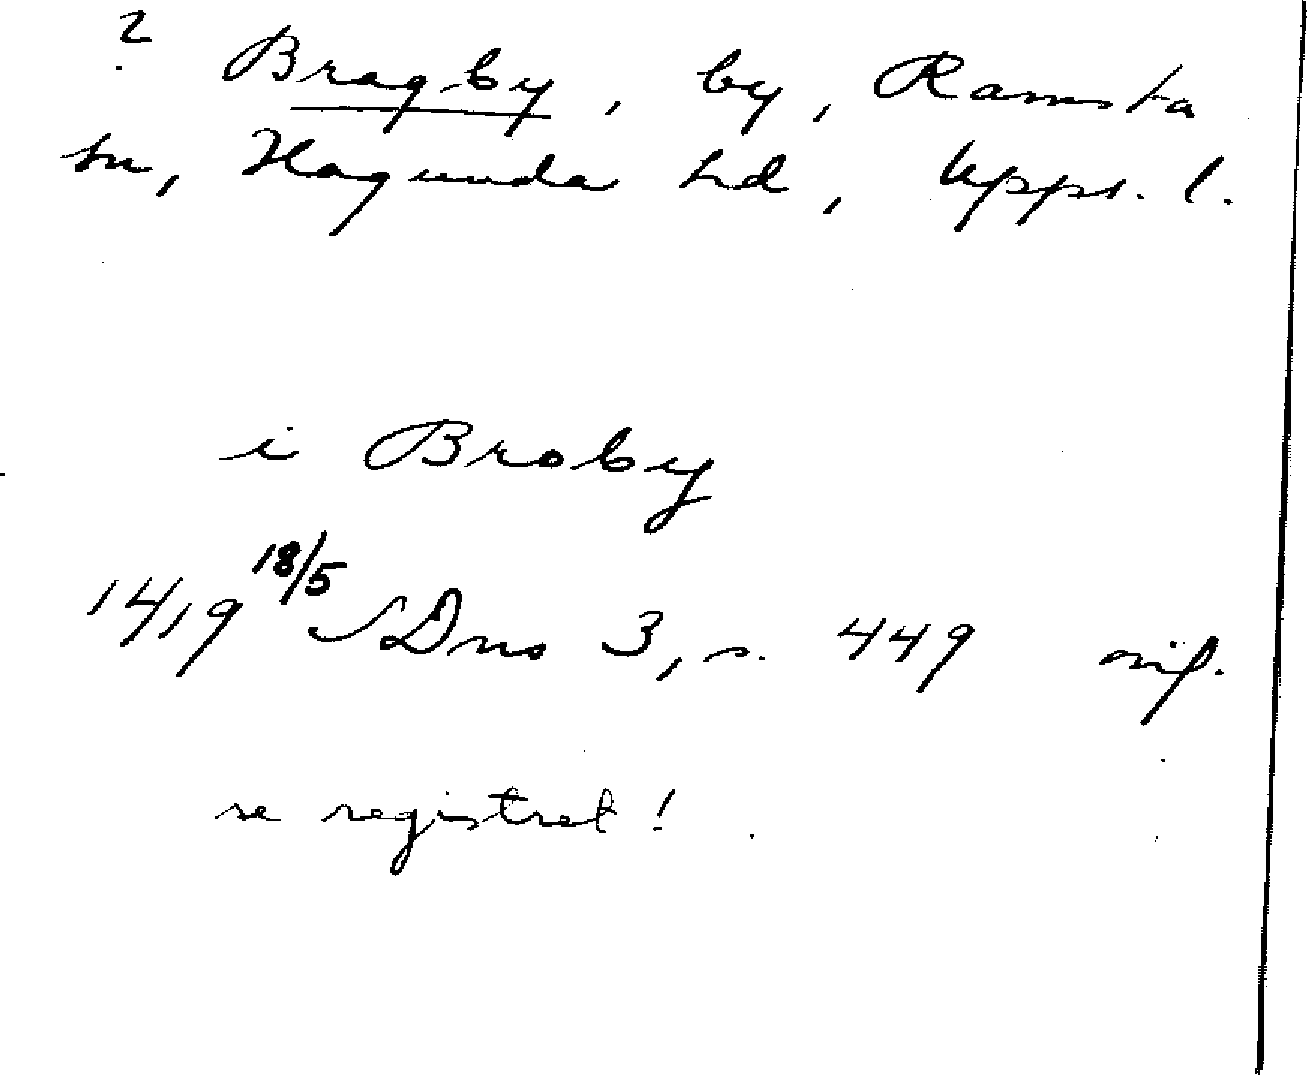 ? Bragby, by, Ramsta
sn, Hagunda hd, Upps. l.
i Broby
1419 18/5 SDns 3, s. 449 oif.
se registret!